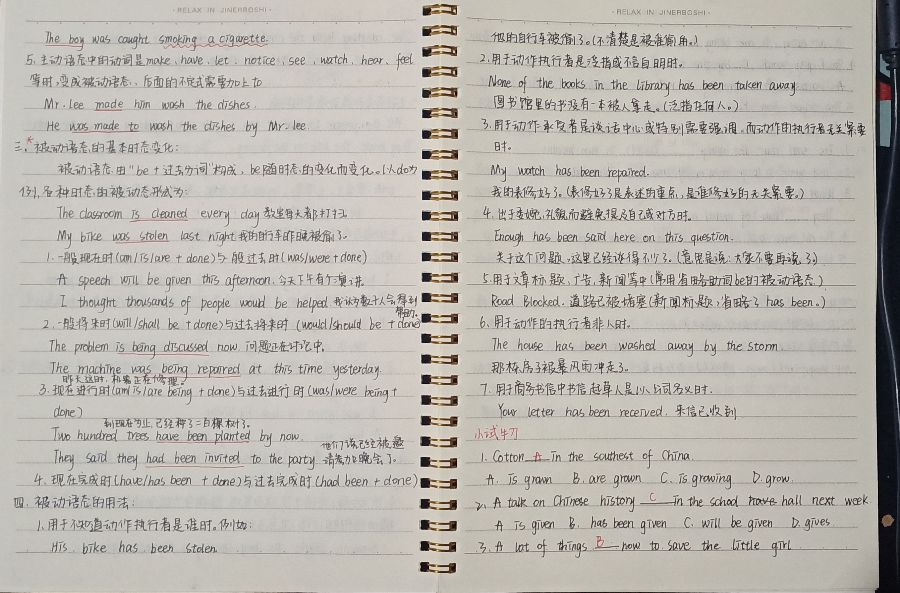 · RELAX IN JINERBOSHI ·
The boy was caught smoking a cigarette.
5. 主动语态中的动词是make, have, let, notice, see, watch, hear, feel
等时,变成被动语态,后面的不定式需要加上to
Mr. lee made him wash the dishes.
He was made to wash the dishes by Mr. lee.
三.*被动语态的基本时态变化:
被动语态由"be+过去分词"构成, be随时态的变化而变化。(以do为
例),各种时态的被动态形式为:
The classroom is cleaned every day 教室每天都打扫.
My bike was stolen last night 我的自行车昨晚被偷了.
1. 一般现在时(am/is/are + done)与一般过去时(was/were + done)
A speech will be given this afternoon. 今天下午有个演讲
I thought thousands of people would be helped 我认为数千人会得到
帮助.
2. 一般将来时(will/shall be + done)与过去将来时 (would/should be + done)
The problem is being discussed now. 问题正在讨论中.
The machine was being repaired at this time yesterday.
昨天这时,机器正在修理.
3. 现在进行时(am/is/are being + done)与过去进行时 (was/were being +
done)
到现在为止,已经种了二百棵树了.
Two hundred trees have been planted by now.
They said they had been invited to the party 他们说已经被邀
请参加晚会了.
4. 现在完成时(have/has been + done)与过去完成时(had been + done)
四. 被动语态的用法:
1. 用于不知道动作执行者是谁时。例如:
His bike has been stolen.
· RELAX IN JINERBOSHI ·
他的自行车被偷了。(不清楚是被谁偷的。)
2. 用于动作执行者是泛指或不言自明时。
None of the books in the library has been taken away.
图书馆里的书没有一本被人拿走。(泛指任何人。)
3. 用于动作承受者是谈话中心或特别需要强调,而动作的执行者无关紧要
时.
My watch has been repaired.
我的表修好了。(表修好了是表述的重点,是谁修好的无关紧要。)
4. 出于委婉,礼貌而避免提及自己或对方时.
Enough has been said here on this question.
关于这个问题,这里已经谈得不少了。(意思是说:大家不要再说了)
5. 用于文章标题、广告、新闻等中(常用省略助动词be的被动语态)
Road Blocked. 道路已被堵塞(新闻标题,省略了has been.)
6. 用于动作的执行者非人时.
The house has been washed away by the storm.
那栋房子被暴风雨冲走了.
7. 用于商务书信中书信起草人是以公司名义时.
Your letter has been received. 来信已收到
小试牛刀
1. Cotton A in the southest of China.
A. is grown B. are grown C. is growing D. grow.
2. A talk on Chinese history C in the school have hall next week
A is given B. has been given C. will be given D. gives.
3. A lot of things B now to save the little girl.